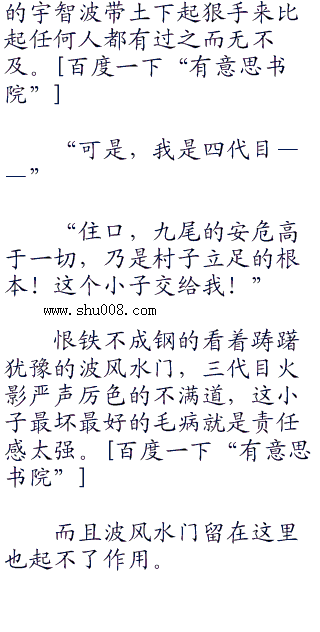 的宇智波带土下起狠手来比
起任何人都有过之而无不
及。[百度一下“有意思书
院”]
“可是，我是四代目—
—”
“住口，九尾的安危高
于一切，乃是村子立足的根
本！这个小子交给我！”
www.shu008.com
恨铁不成钢的看着踌躇
犹豫的波风水门，三代目火
影严声厉色的不满道，这小
子最坏最好的毛病就是责任
感太强。[百度一下“有意思
书院”]
而且波风水门留在这里
也起不了作用。